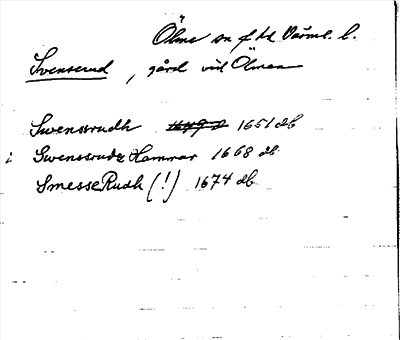 Ölme sn f hd Värml. l.
Svenserud, gård vid Ölman
Swenssrudh 1651 db
i Swenssrudz Hammar 1668 db
Smesse Rudh (!) 1674 db